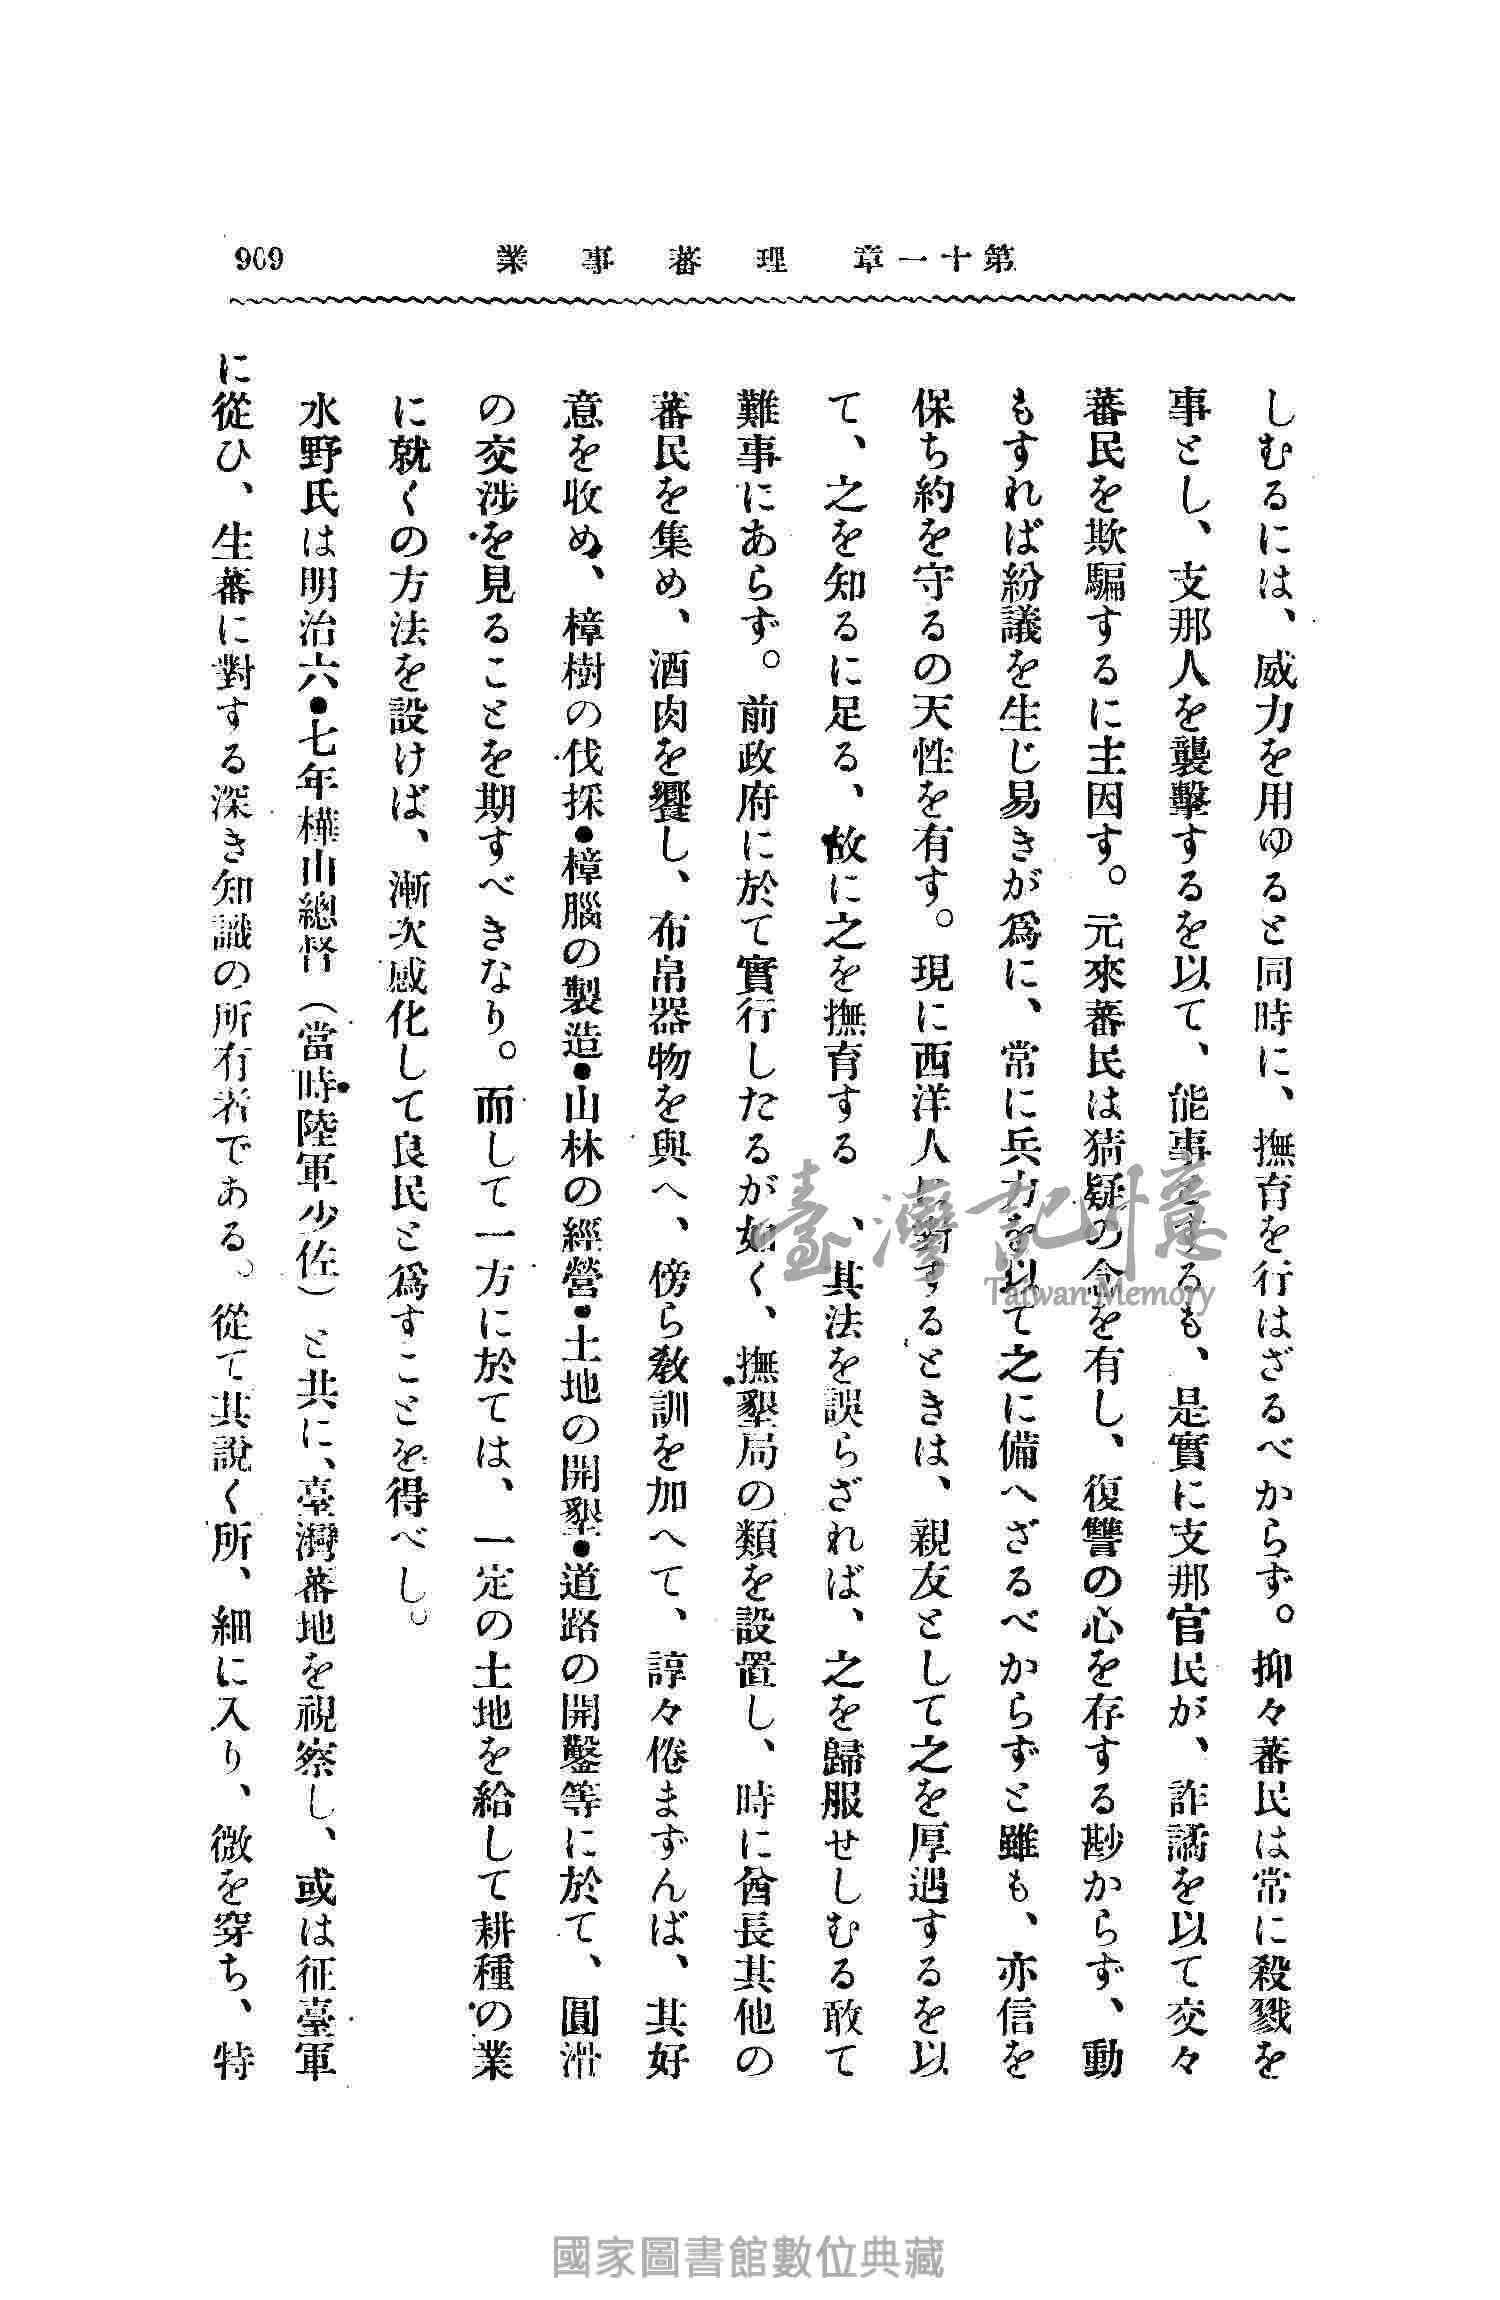 第十一章　理蕃事業
909
しむるには、威力を用ゆると同時に、撫育を行はざるべからず。抑々蕃民は常に殺戮を
事とし、支那人を襲擊するを以て、能事とするも、是實に支那官民が、詐譎を以て交々
蕃民を欺騙するに主因す。元來蕃民は猜疑の念を有し、復讐の心を存する尠からず、動
もすれば紛議を生じ易きが爲に、常に兵力を以て之に備へざるべからずと雖も、亦信を
保ち約を守るの天性を有す。現に西洋人に對するときは、親友として之を厚遇するを以
て、之を知るに足る、故に之を撫育する　、其法を誤らざれば、之を歸服せしむる敢て
難事にあらず。前政府に於て實行したるが如く、撫墾局の類を設置し、時に酋長其他の
蕃民を集め、酒肉を饗し、布帛器物を與へ、傍ら敎訓を加へて、諄々倦まずんば、其好
意を收め、樟樹の伐採●樟腦の製造●山林の經營●土地の開墾●道路の開鑿等に於て、圓滑
の交涉を見ることを期すべきなり。而して一方に於ては、一定の土地を給して耕種の業
に就くの方法を設けば、漸次感化して良民と爲すことを得べし。
水野氏は明治六●七年樺山總督（當時陸軍少佐）と共に、臺灣蕃地を視察し、或は征臺軍
に從ひ、生蕃に對する深き知識の所有者である。從て其說く所、細に入り、微を穿ち、特
臺灣記憶
Taiwan Memory
國家圖書館數位典藏